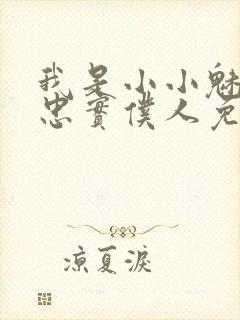 我是小小魅
忠實僕人免
涼夏淚